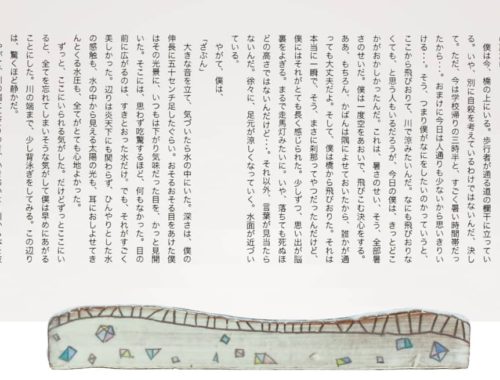 僕は今、橋の上にいる。歩行者が通る道の欄干に立ってい
る。いや、別に自殺を考えているわけではないんだ、決し
て。ただ、今は学校帰りの三時半と、すごく暑い時間帯だっ
たから・・。おまけに今日は人通りも少ないから思いきりい
ける・・。そう、つまり僕がなにをしたいのかっていうと、
ここから飛びおりて、川で涼みたいんだ。なにも飛びおりな
くても、と思う人もいるだろうが、今日の僕は、きっとどこ
かがおかしかったんだ。これは、暑さのせい、そう、全部暑
さのせいだ。僕は一度空をあおいで、飛びこむ決心をする。
ああ、もちろん、かばんは隅によせておいたから、誰かが通
っても大丈夫だよ。そして、僕は橋から飛びおりた。それは
本当に一瞬で、そう、まさに刹那ってやつだったんだけど、
僕にはそれがとても長く感じられた。少しずつ、思い出が脳
裏をよぎる。まるで走馬灯みたいに。いや、落ちても死ぬほ
どの高さではないんだけど・・。それ以外、言葉が見当たら
ないんだ。徐々に、足元が涼しくなっていく。水面が近づい
ている。
やがて、僕は、
「ざぶん」
大きな音を立て、気づいたら水の中にいた。深さは、僕の
伸長に五十センチ足したぐらい。おそるおそる目をあけた僕
はその光景に、いつもは下がり気味だった目を、かっと見開
いた。そこには、思わず吃驚するほど、何もなかった。目の
前に広がるのは、すきとおった水だけ。でも、それがすごく
美しかった。辺りは炎天下にも関わらず、ひんやりとした水
の感触も、水の中から見える太陽の光も、耳におしよせてき
たくる水圧も、全てがとても心地よかった。
ずっと、ここにいられる気がした。だけどずっとここにい
ると、全てを忘れてしまいそうな気がして僕は早めにあがる
ことにした。川の端まで、少し背泳ぎをしてみる。この辺り
は、驚くほど静かだ。